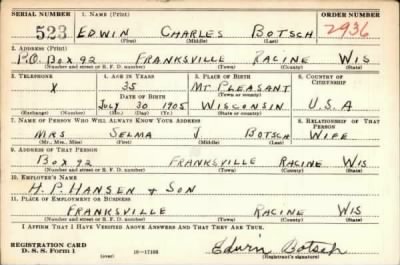 SERIAL NUMBER 1. NAME (Print) ORDER NUMBER
523 EDWIN CHARLES BOTSCH 2936
(First) (Middle) (Last)
2. ADDRESS (Print)
P.O. BOX 92 FRANKSVILLE RACINE WIS
(Number and street or R. F. D. number) (Town) (County) (State)
3. TELEPHONE 4. AGE IN YEARS 5. PLACE OF BIRTH 6. COUNTRY OF CITIZENSHIP
X 35 MT. PLEASANT
DATE OF BIRTH (Town or county)
JULY 30 1905 WISCONSIN U.S.A
(Exchange) (Number) (Mo.) (Day) (Yr.) (State or country)
7. NAME OF PERSON WHO WILL ALWAYS KNOW YOUR ADDRESS 8. RELATIONSHIP OF THAT PERSON
MRS SELMA J BOTSCH WIFE
(Mr., Mrs., Miss) (First) (Middle) (Last)
9. ADDRESS OF THAT PERSON
BOX 92 FRANKSVILLE RACINE WIS
(Number and street or R. F. D. number) (Town) (County) (State)
10. EMPLOYER'S NAME
H. P. HANSEN & SON
11. PLACE OF EMPLOYMENT OR BUSINESS
FRANKSVILLE RACINE WIS
(Number and street or R. F. D. number) (Town) (County) (State)
I AFFIRM THAT I HAVE VERIFIED ABOVE ANSWERS AND THAT THEY ARE TRUE.
REGISTRATION CARD
D. S. S. Form 1 (over) Edwin Botsch
(Registrant's signature)